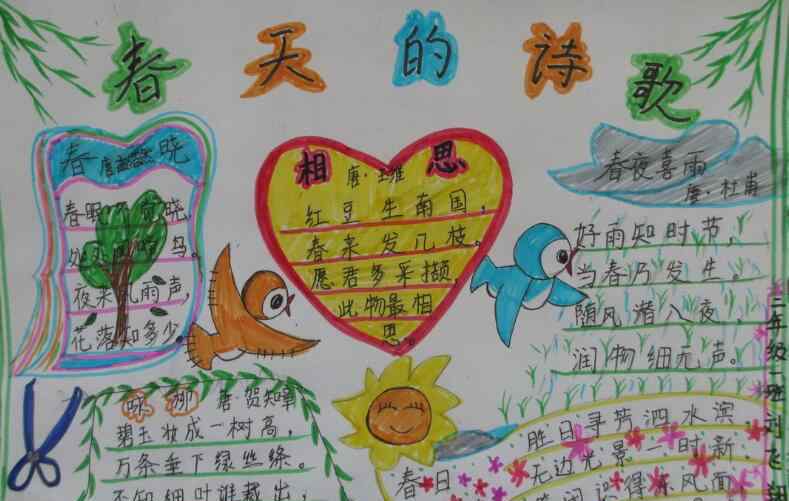 春天的诗歌
春晓
唐
春眠不觉晓,
处处闻啼鸟。
夜来风雨声,
花落知多少。
相思
唐·王维
红豆生南国,
春来发几枝。
愿君多采撷,
此物最相
思。
春夜喜雨
唐·杜甫
好雨知时节,
当春乃发生。
随风潜入夜,
润物细无声。
咏柳 唐 贺知章
碧玉妆成一树高,
万条垂下绿丝绦。
不知细叶谁裁出,
春日
胜日寻芳泗水滨
无边光景一时新
得东风面
二年级一班刘飞